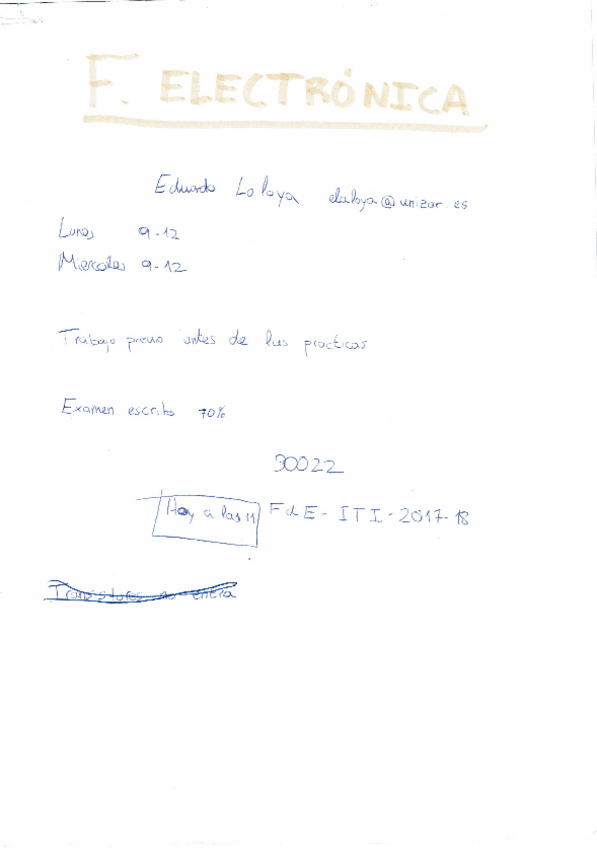 F. ELECTRÓNICA
Eduardo Laloya elaloya@unizar.es
Lunes 9-12
Miercoles 9-12
Trabajo previo antes de las practicas
Examen escrito 70%
30022
Hoy a las 11 FdE - ITI - 2017-18
Transistores no entra